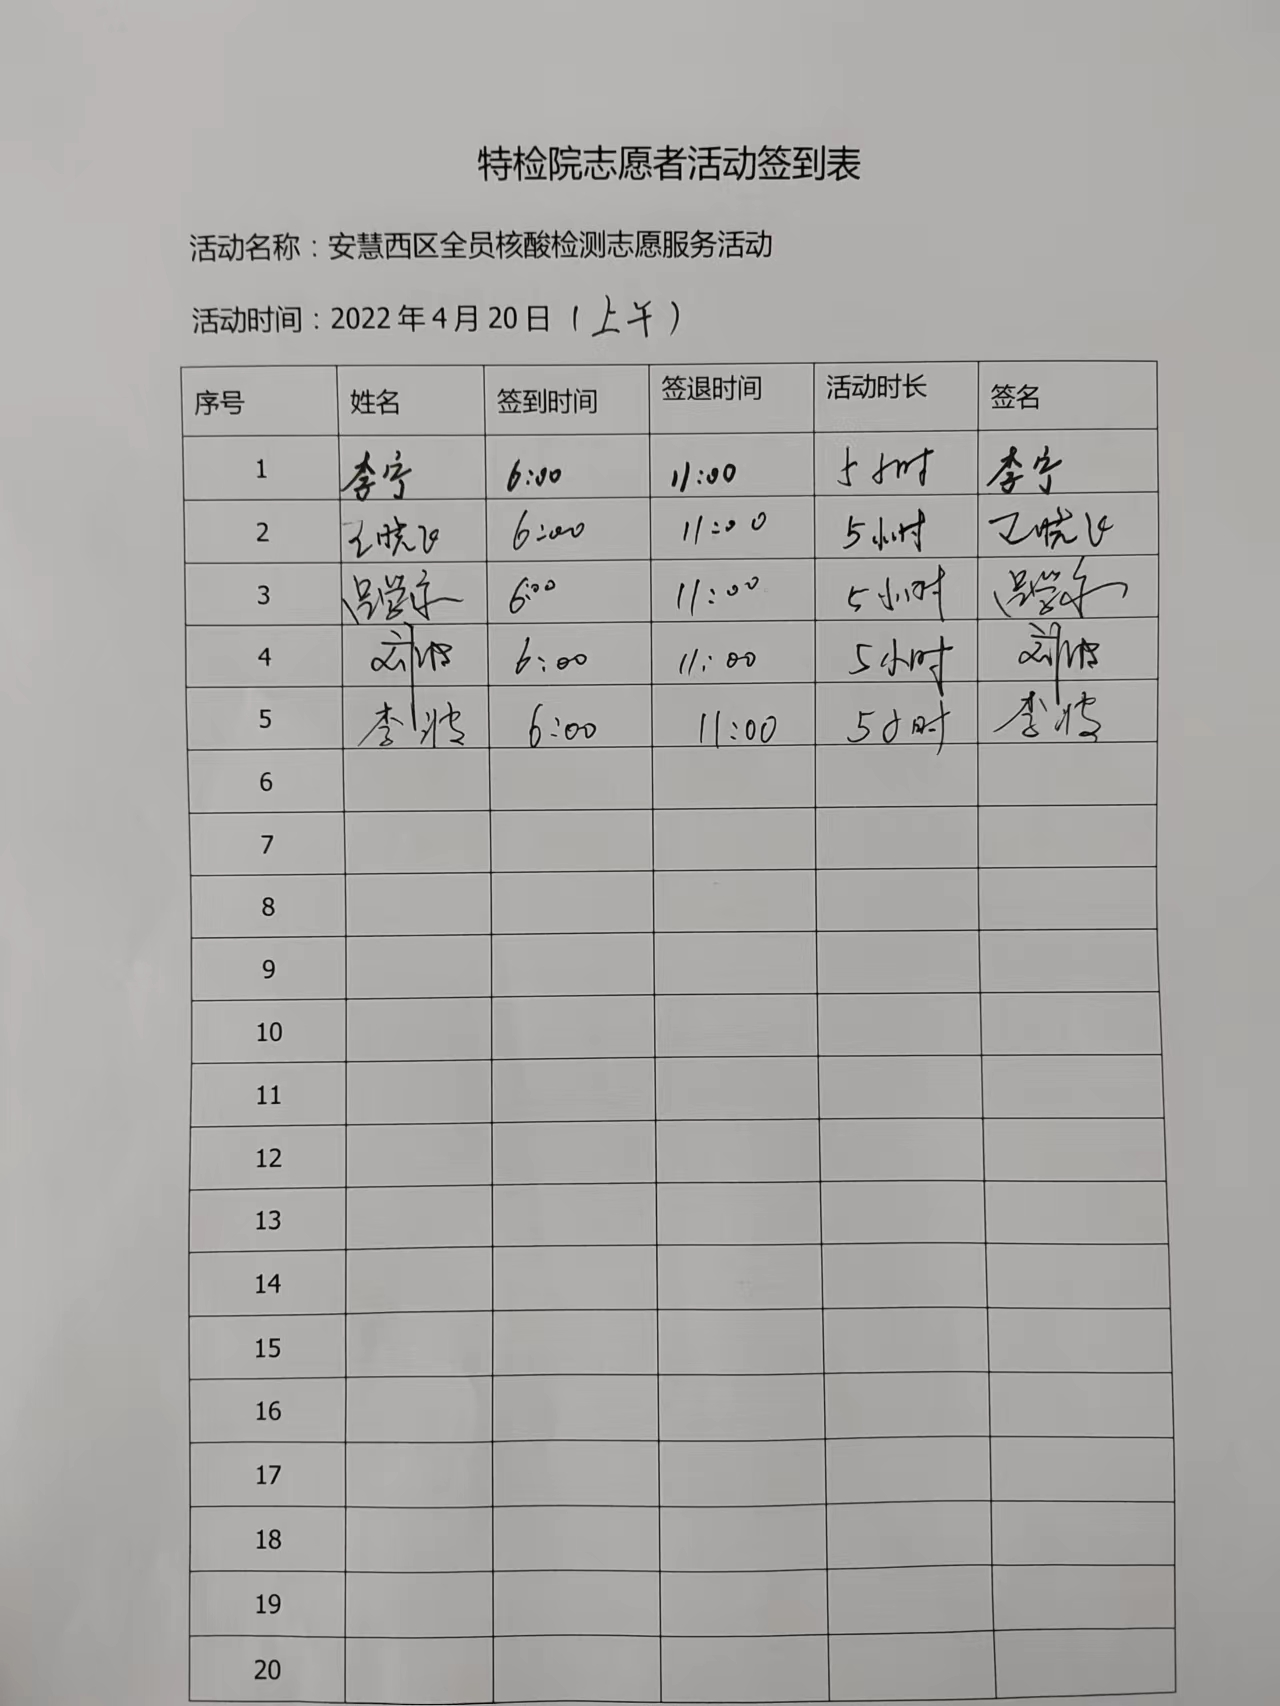 特检院志愿者活动签到表
活动名称：安慧西区全员核酸检测志愿服务活动
活动时间：2022年4月20日（上午）
序号 姓名 签到时间 签退时间 活动时长 签名
1 李宁 6:00 11:00 5小时 李宁
2 王晓飞 6:00 11:00 5小时 王晓飞
3 吕学 6:00 11:00 5小时 吕学
4 刘 6:00 11:00 5小时 刘
5 李波 6:00 11:00 5小时 李波
6
7
8
9
10
11
12
13
14
15
16
17
18
19
20